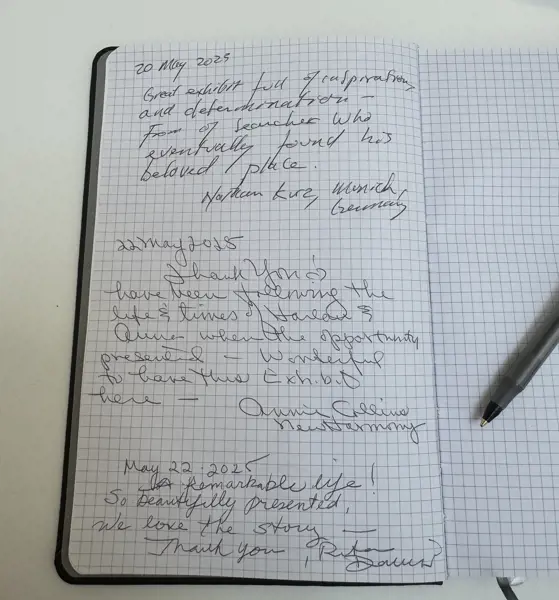 20 May 2025
Great exhibit full of inspiration,
and determination –
From of searcher who
eventually found his
beloved place.
Nathan Munich,
Germany
22 May 2025
Thank You! I
have been following the
life & times of Harlan &
Anna when the opportunity
presented – Wonderful
to have this Exhibit
here – Annie Collins
New Harmony
May 22 . 2025
A Remarkable life!
So beautifully presented,
We love the story —
Thank you,